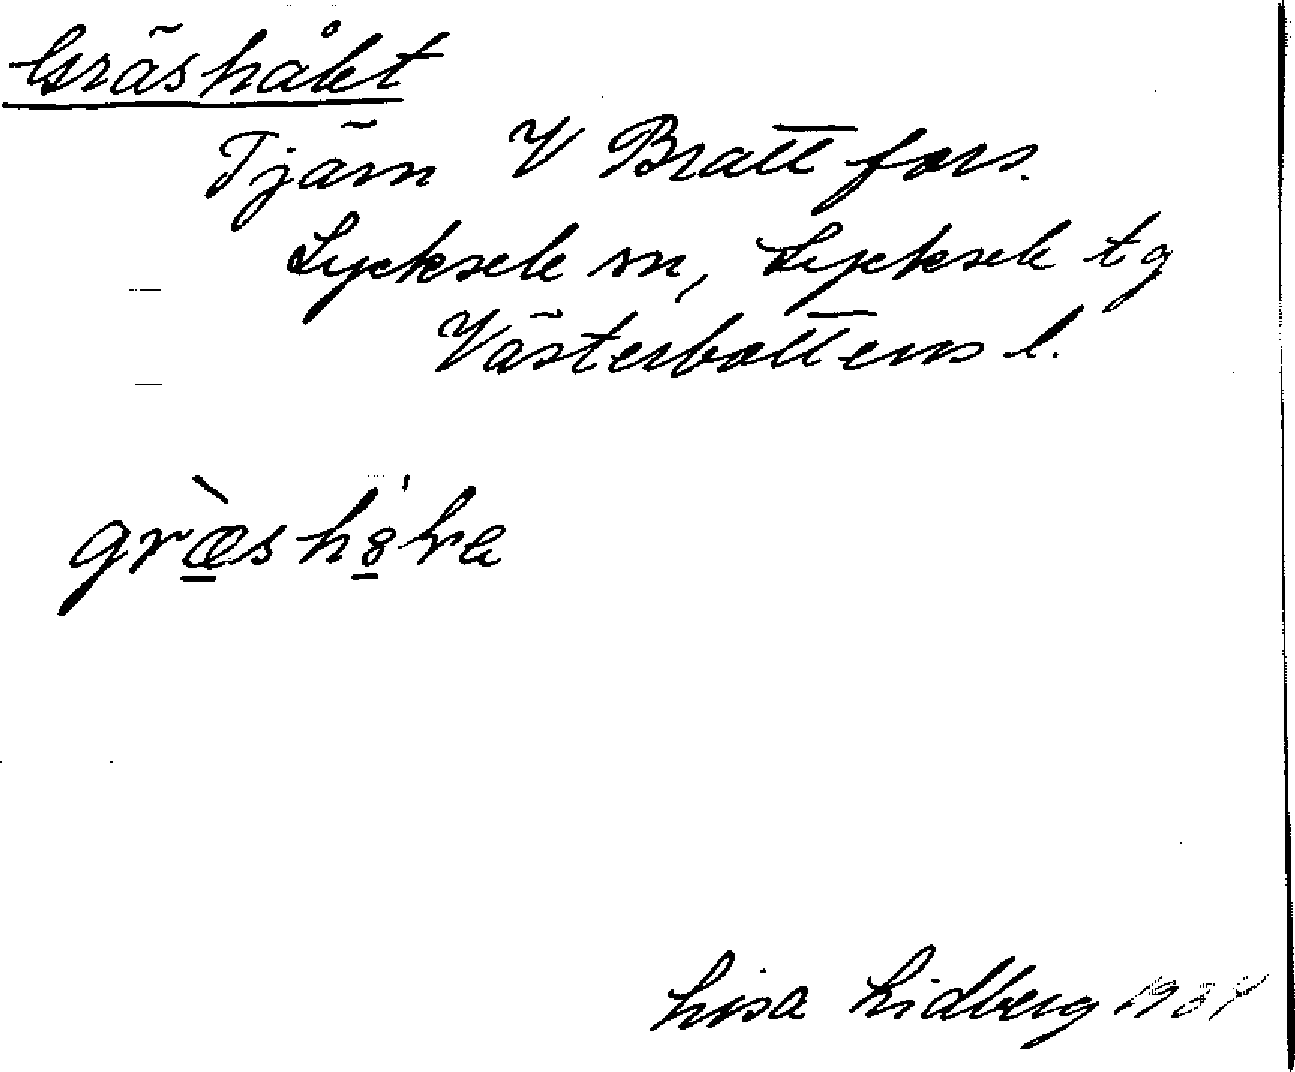 Gräshålet
Tjärn V Brattfors.
Lycksele sn, Lycksele tg
Västerbottens l.
græ̀shålɐ
Lisa Lidberg